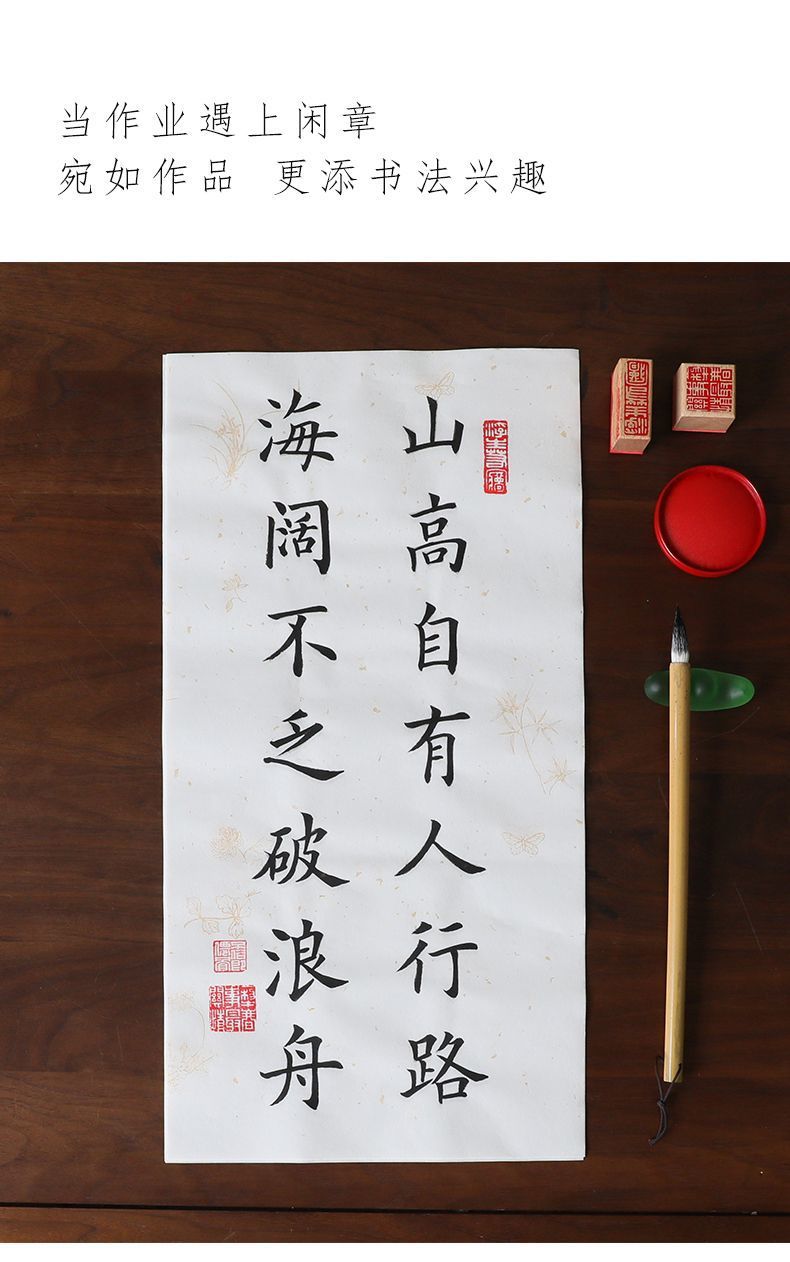 当作业遇上闲章
宛如作品 更添书法兴趣
山高自有人行路
海阔不乏破浪舟